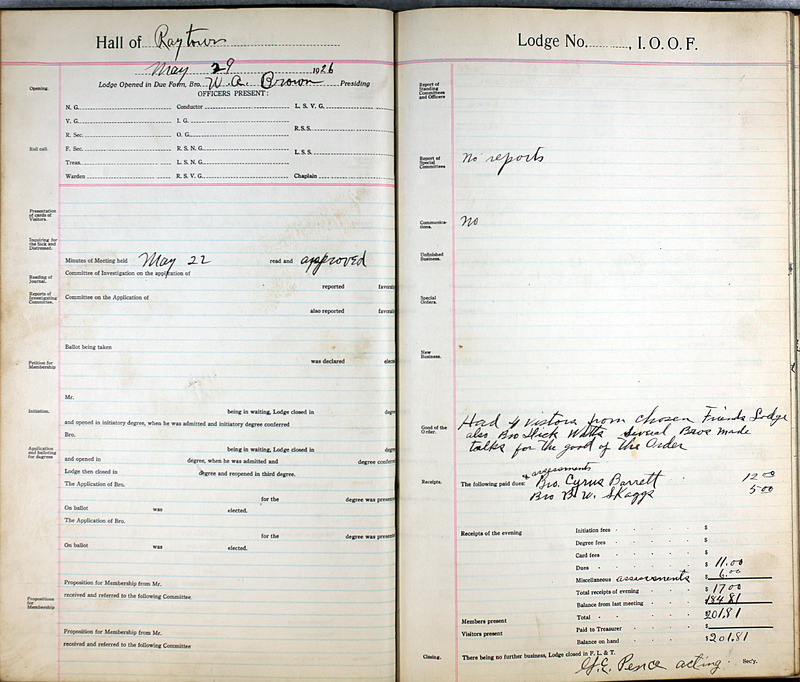 Hall of Raytown
May 29 1926
Opening. Lodge Opened in Due Form, Bro. W. A. Brown Presiding
OFFICERS PRESENT:
N. G. Conductor L. S. V. G.
V. G. I. G.
R. Sec. O. G. R.S.S.
Roll call. F. Sec. R. S. N. G.
Treas. L. S. N. G. L.S.S.
Warden R. S. V. G. Chaplain
Presentation of cards of Visitors.
Inquiring for the Sick and Distressed.
Minutes of Meeting held May 22 read and approved
Reading of Journal.
Committee of Investigation on the application of
reported favora
Reports of Investigating Committee.
Committee on the Application of
also reported favora
Ballot being taken
was declared elec
Petition for Membership
Mr.
Initiation. being in waiting, Lodge closed in degr
and opened in initiatory degree, when he was admitted and initiatory degree conferred
Bro.
Application and balloting for degrees
being in waiting, Lodge closed in degr
and opened in degree, when he was admitted and degree conferr
Lodge then closed in degree and reopened in third degree.
The Application of Bro.
for the degree was presen
On ballot was elected.
The Application of Bro.
for the degree was presen
On ballot was elected.
Proposition for Membership from Mr.
received and referred to the following Committee
Propositions for Membership
Proposition for Membership from Mr.
received and referred to the following Committee
Lodge No. , I. O. O. F.
Report of Standing Committees and Officers
Report of Special Committees
No reports
Communications. No
Unfinished Business.
Special Orders.
New Business.
Good of the Order.
Had 4 visitors from Chosen Friends Lodge
also Bro Watts Several Bros made
talks for the good of the Order
assessments
Receipts. The following paid dues: & Bro. Cyrus Barrett 12 00
Bro B. W. Skaggs 5 00
Receipts of the evening Initiation fees $
Degree fees $
Card fees $
Dues $ 11.00
Miscellaneous assessments $ 6.00
Total receipts of evening $ 17 00
Balance from last meeting 184 81
Members present Total 201.81
Visitors present Paid to Treasurer $
Balance on hand $ 201.81
Closing. There being no further business, Lodge closed in F. L. & T.
Pence acting Sec'y.